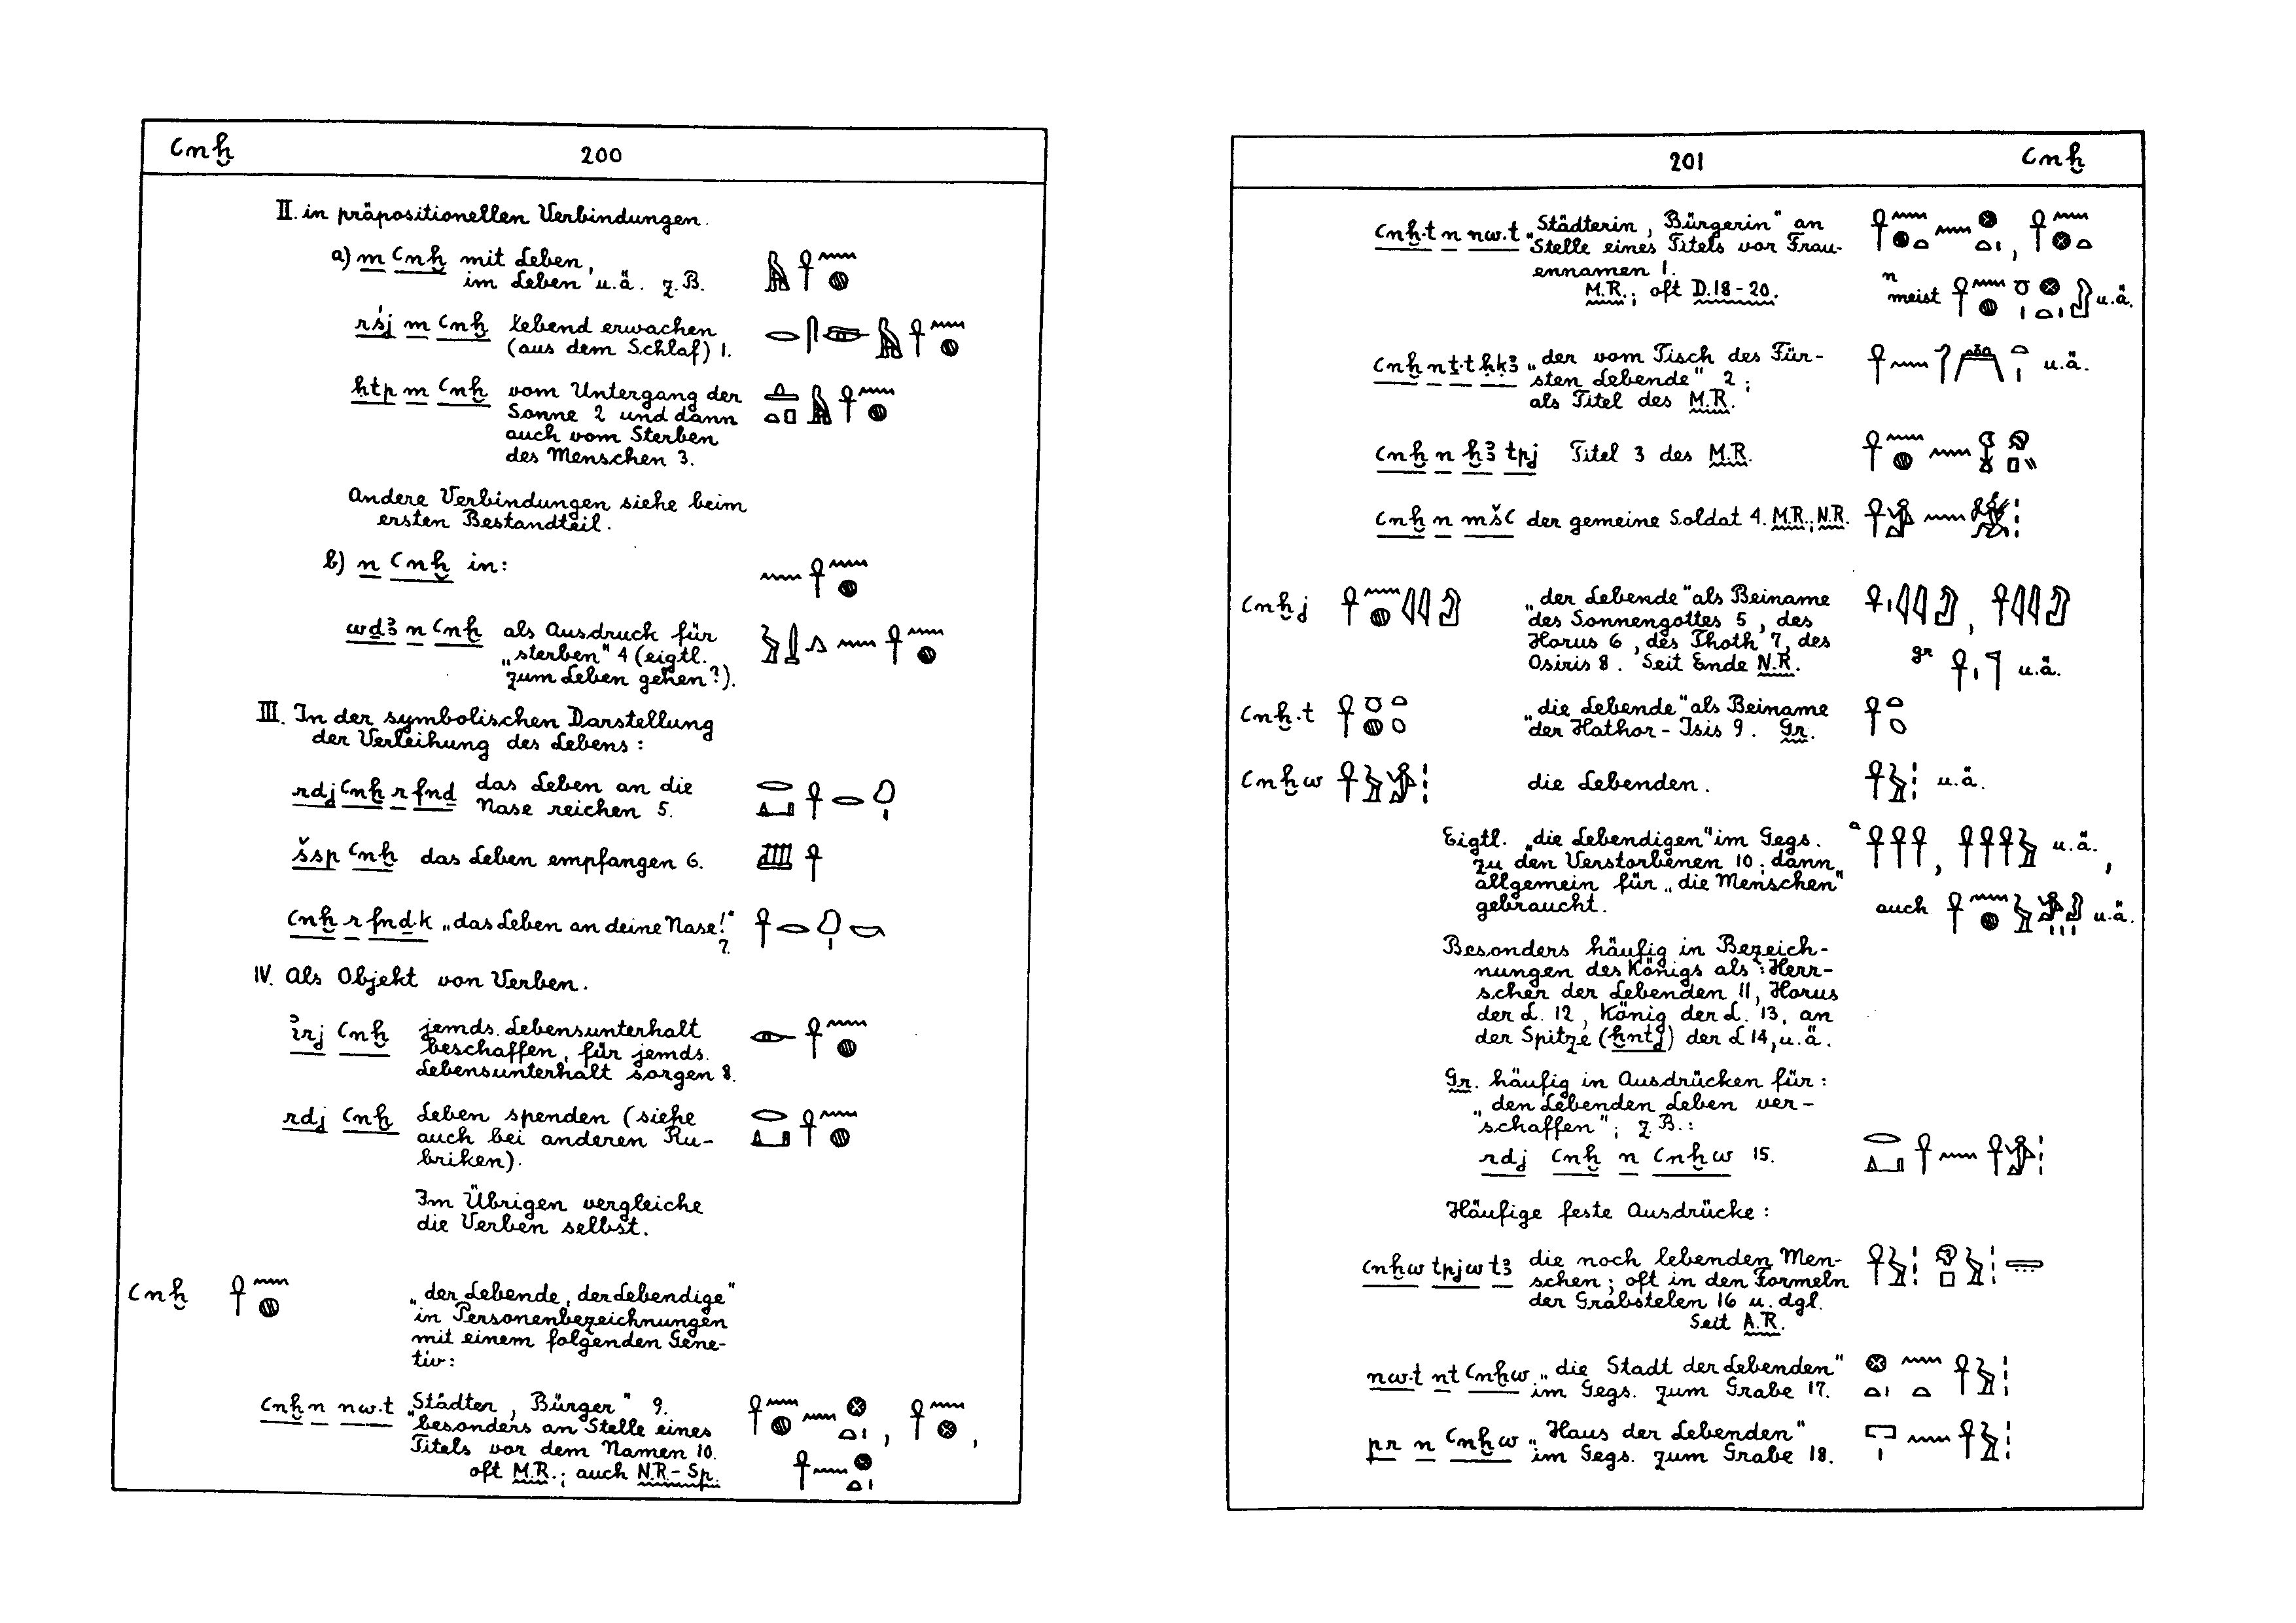 ꜥnḫ 200
II. in präpositionellen Verbindungen.
a) m ꜥnḫ mit Leben,
im Leben u.ä. z.B.
rśj m ꜥnḫ lebend erwachen
(aus dem Schlaf) 1.
ḥtp m ꜥnḫ vom Untergang der
Sonne 2 und dann
auch vom Sterben
des Menschen 3.
Andere Verbindungen siehe beim
ersten Bestandteil.
b) n ꜥnḫ in:
wḏꜣ n ꜥnḫ als Ausdruck für
„sterben" 4 (eigtl.
zum Leben gehen?).
III. In der symbolischen Darstellung
der Verleihung des Lebens:
rdj ꜥnḫ r fnḏ das Leben an die
Nase reichen 5.
šsp ꜥnḫ das Leben empfangen 6.
ꜥnḫ r fnḏ.k „das Leben an deine Nase!"
7.
IV. Als Objekt von Verben.
ꞽrj ꜥnḫ jemds. Lebensunterhalt
beschaffen, für jemds.
Lebensunterhalt sorgen 8.
rdj ꜥnḫ Leben spenden (siehe
auch bei anderen Ru-
briken).
Im Übrigen vergleiche
die Verben selbst.
ꜥnḫ „der Lebende, der Lebendige"
in Personenbezeichnungen
mit einem folgenden Gene-
tiv:
ꜥnḫ n nw.t „Städter, Bürger" 9.
besonders an Stelle eines
Titels vor dem Namen 10.
oft M.R.; auch N.R.-Sp.
201 ꜥnḫ
ꜥnḫ.t n nw.t „Städterin, Bürgerin" an
Stelle eines Titels vor Frau-
ennamen 1.
M.R.; oft D.18-20. n meist u.ä.
ꜥnḫ n ṯ.t ḥḳꜣ „der vom Tisch des Für- u.ä.
sten Lebende" 2;
als Titel des M.R.
ꜥnḫ n ḫꜣ tpj Titel 3 des M.R.
ꜥnḫ n mšꜥ der gemeine Soldat 4. M.R.; N.R.
ꜥnḫj „der Lebende" als Beiname
des Sonnengottes 5, des
Horus 6, des Thoth 7, des
Osiris 8. Seit Ende N.R. gr u.ä.
ꜥnḫ.t „die Lebende" als Beiname
der Hathor-Isis 9. Gr.
ꜥnḫw die Lebenden. u.ä.
Eigtl. „die Lebendigen" im Gegs. a u.ä.,
zu den Verstorbenen 10; dann
allgemein für „die Menschen"
gebraucht. auch u.ä.
Besonders häufig in Bezeich-
nungen des Königs als: Herr-
scher der Lebenden 11, Horus
der L. 12, König der L. 13, an
der Spitze (ḫntj) der L 14, u.ä.
Gr. häufig in Ausdrücken für:
„den Lebenden Leben ver-
schaffen"; z.B.:
rdj ꜥnḫ n ꜥnḫw 15.
Häufige feste Ausdrücke:
ꜥnḫw tpjw tꜣ die noch lebenden Men-
schen; oft in den Formeln
der Grabstelen 16 u. dgl.
Seit A.R.
nw.t nt ꜥnḫw „die Stadt der Lebenden"
im Gegs. zum Grabe 17.
pr n ꜥnḫw „Haus der Lebenden"
im Gegs. zum Grabe 18.